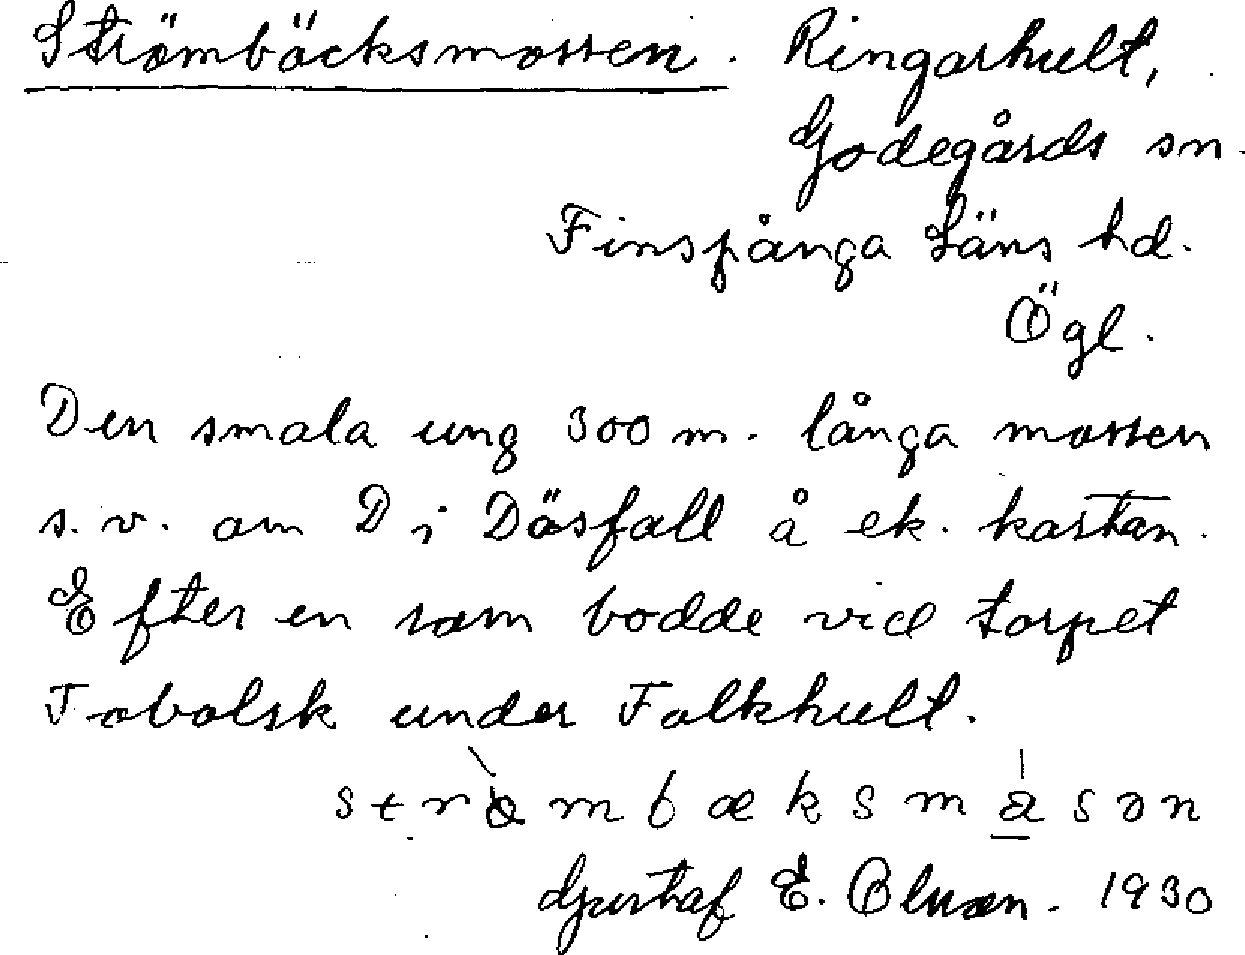 Strömbäcksmossen. Ringarhult,
Godegårds sn.
Finspånga Läns hd.
Ögl.
Den smala ung 300 m. långa mossen
s.v. om D i Dösfall å ek. kartan.
Efter en som bodde vid torpet
Tobolsk under Folkhult.
strömbæksmåsən
Gustaf E. 1930